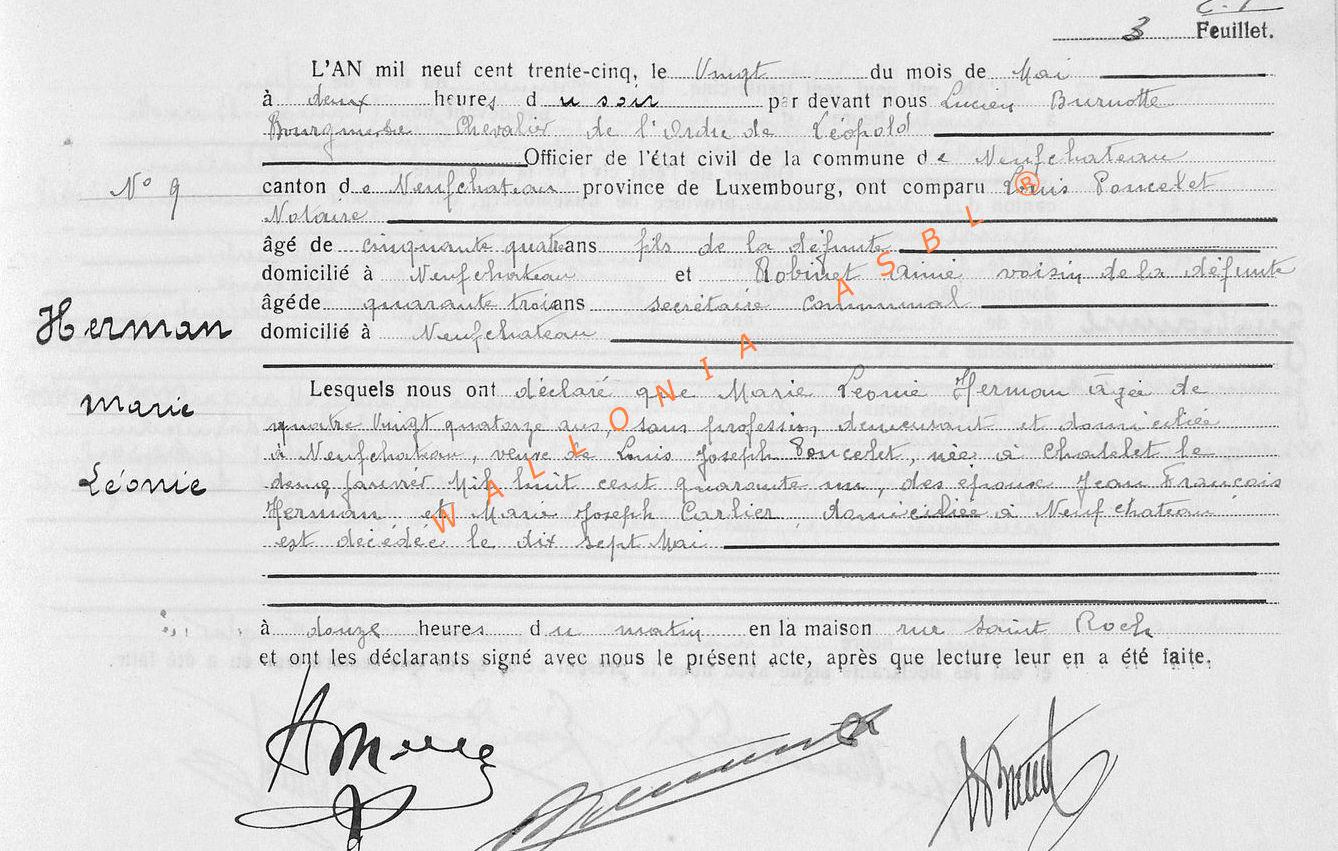 3 Feuillet.
L'AN mil neuf cent trente-cinq, le Vingt du mois de Mai
à deux heures du soir par devant nous Lucien Burnotte
Bourgmestre Chevalier de l'Ordre de Léopold
Officier de l'état civil de la commune de Neufchateau
N° 9
canton de Neufchateau province de Luxembourg, ont comparu Louis Poncelet
Notaire
âgé de cinquante quatre ans fils de la défunte
domicilié à Neufchateau et Robinet Aimé voisin de la défunte
âgé de quarante trois ans secrétaire communal
Herman
domicilié à Neufchateau
Lesquels nous ont déclaré que Marie Leonie Herman âgée de
Marie
quatre Vingt quatorze ans, sans profession, demeurant et domiciliée
à Neufchateau, veuve de Louis Joseph Poncelet, née à Chatelet le
Léonie
deux Janvier Mil huit cent quarante un, des époux Jean François
Herman et Marie Joseph Carlier, domiciliée à Neufchateau
est décédée le dix sept Mai
à douze heures du matin en la maison rue Saint Roch
et ont les déclarants signé avec nous le présent acte, après que lecture leur en a été faite.
WALLONIA ASBL ®